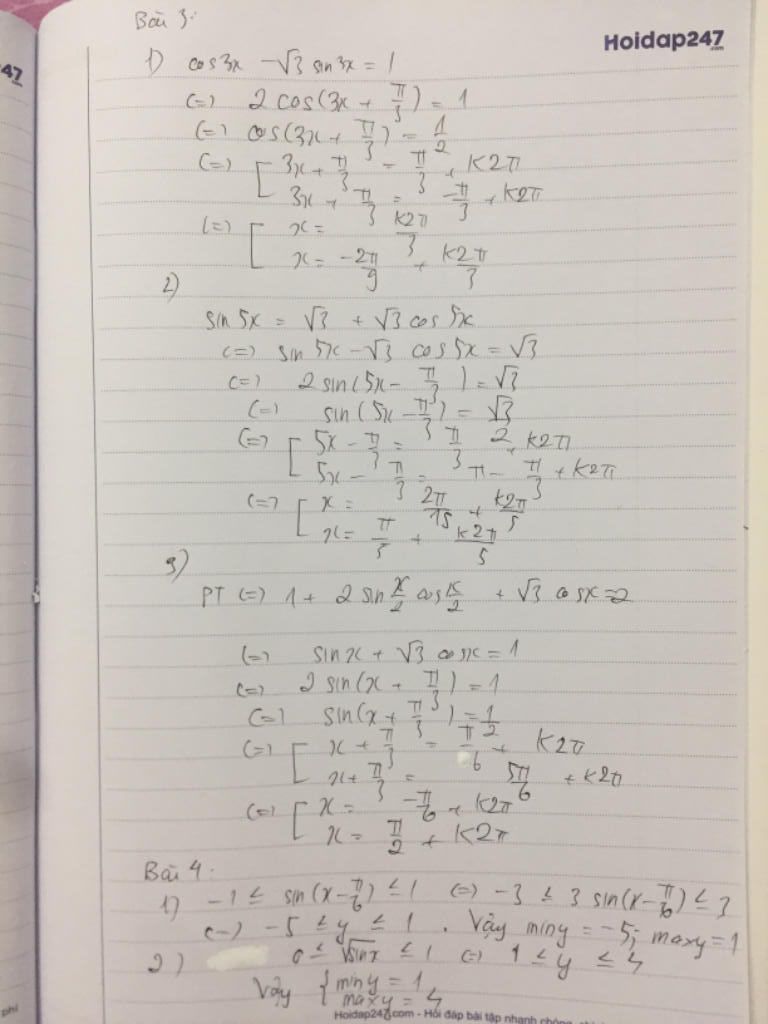 Bài 3:
Hoidap247
.com
47
1) cos3x - √3 sin3x = 1
(=) 2 cos(3x + π/3) = 1
(=) cos(3x + π/3) = 1/2
(=) [ 3x + π/3 = π/3 + k2π
3x + π/3 = -π/3 + k2π
(=) [ x = k2π/3
x = -2π/9 + k2π/3
2)
sin 5x = √3 + √3 cos 5x
(=) sin 5x - √3 cos 5x = √3
(=) 2 sin(5x - π/3) = √3
(=) sin(5x - π/3) = √3/2
(=) [ 5x - π/3 = π/3 + k2π
5x - π/3 = π - π/3 + k2π
(=) [ x = 2π/15 + k2π/5
x = π/5 + k2π/5
3)
PT (=) 1 + 2 sin x/2 cos x/2 + √3 cosx = 2
(=) sinx + √3 cosx = 1
(=) 2 sin(x + π/3) = 1
(=) sin(x + π/3) = 1/2
(=) [ x + π/3 = π/6 + k2π
x + π/3 = 5π/6 + k2π
(=) [ x = -π/6 + k2π
x = π/2 + k2π
Bài 4:
1) -1 ≤ sin(x - π/6) ≤ 1 (=) -3 ≤ 3 sin(x - π/6) ≤ 3
(=) -5 ≤ y ≤ 1. Vậy miny = -5; maxy = 1
2) 0 ≤ √sinx ≤ 1 (=) 1 ≤ y ≤ 4
Vậy { miny = 1
maxy = 4
phí
Hoidap247.com - Hỏi đáp bài tập nhanh chóng,